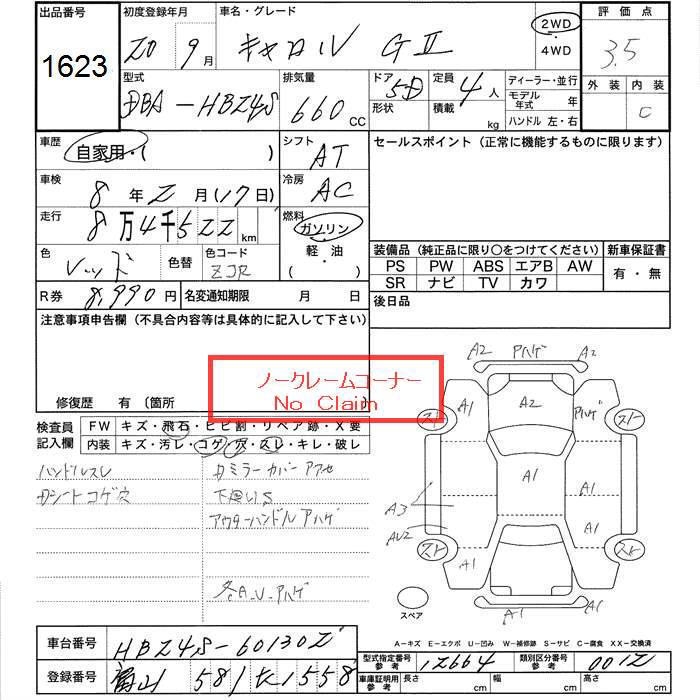 出品番号 初度登録年月 車名・グレード 2WD 評価点
1623 20 9月 キャロル GⅡ 4WD 3.5
型式 排気量 ドア 5D 定員 4人 ディーラー・並行 外装 内装
DBA-HB24S 660 CC 形状 積載 kg モデル年式 年 C
ハンドル 左・右
車歴 自家用・( ) シフト AT セールスポイント (正常に機能するものに限ります)
車検 8年2月(17日) 冷房 AC
走行 8万4千522 km 燃料 ガソリン
軽・油
( )
色 レッド 色替 色コード ZCR
装備品 (純正品に限り○をつけてください) 新車保証書
PS PW ABS エアB AW 有・無
SR ナビ TV カワ
R券 8,990円 名変通知期限 月 日 後日品
注意事項申告欄 (不具合内容等は具体的に記入して下さい)
ノークレームコーナー
No Claim
修復歴 有 〔箇所
検査員記入欄 FW キズ・飛石・ヒビ割・リペア跡・X要
内装 キズ・汚レ・コゲ・穴・スレ・キレ・破レ
ハンドルスレ
Dシートコゲ穴
Dミラーカバーアワセ
下廻りS
アウターハンドルAハゲ
各A-U-Aハゲ
A2 Aハゲ A2
A1 A2 Aハゲ
スノー スノー
A1 A1
A3
AU2 A1
スノー スノー
A1 A1
A1 A1
スペア
A-キズ E-エクボ U-凹み W-補修跡 S-サビ C-腐食 XX-交換済
車台番号 HB24S-601302
登録番号 富山 581 と 1558
型式指定番号 参考 12664 類別区分番号 参考 0012
車庫証明用 参考 長さ cm 幅 cm 高さ cm